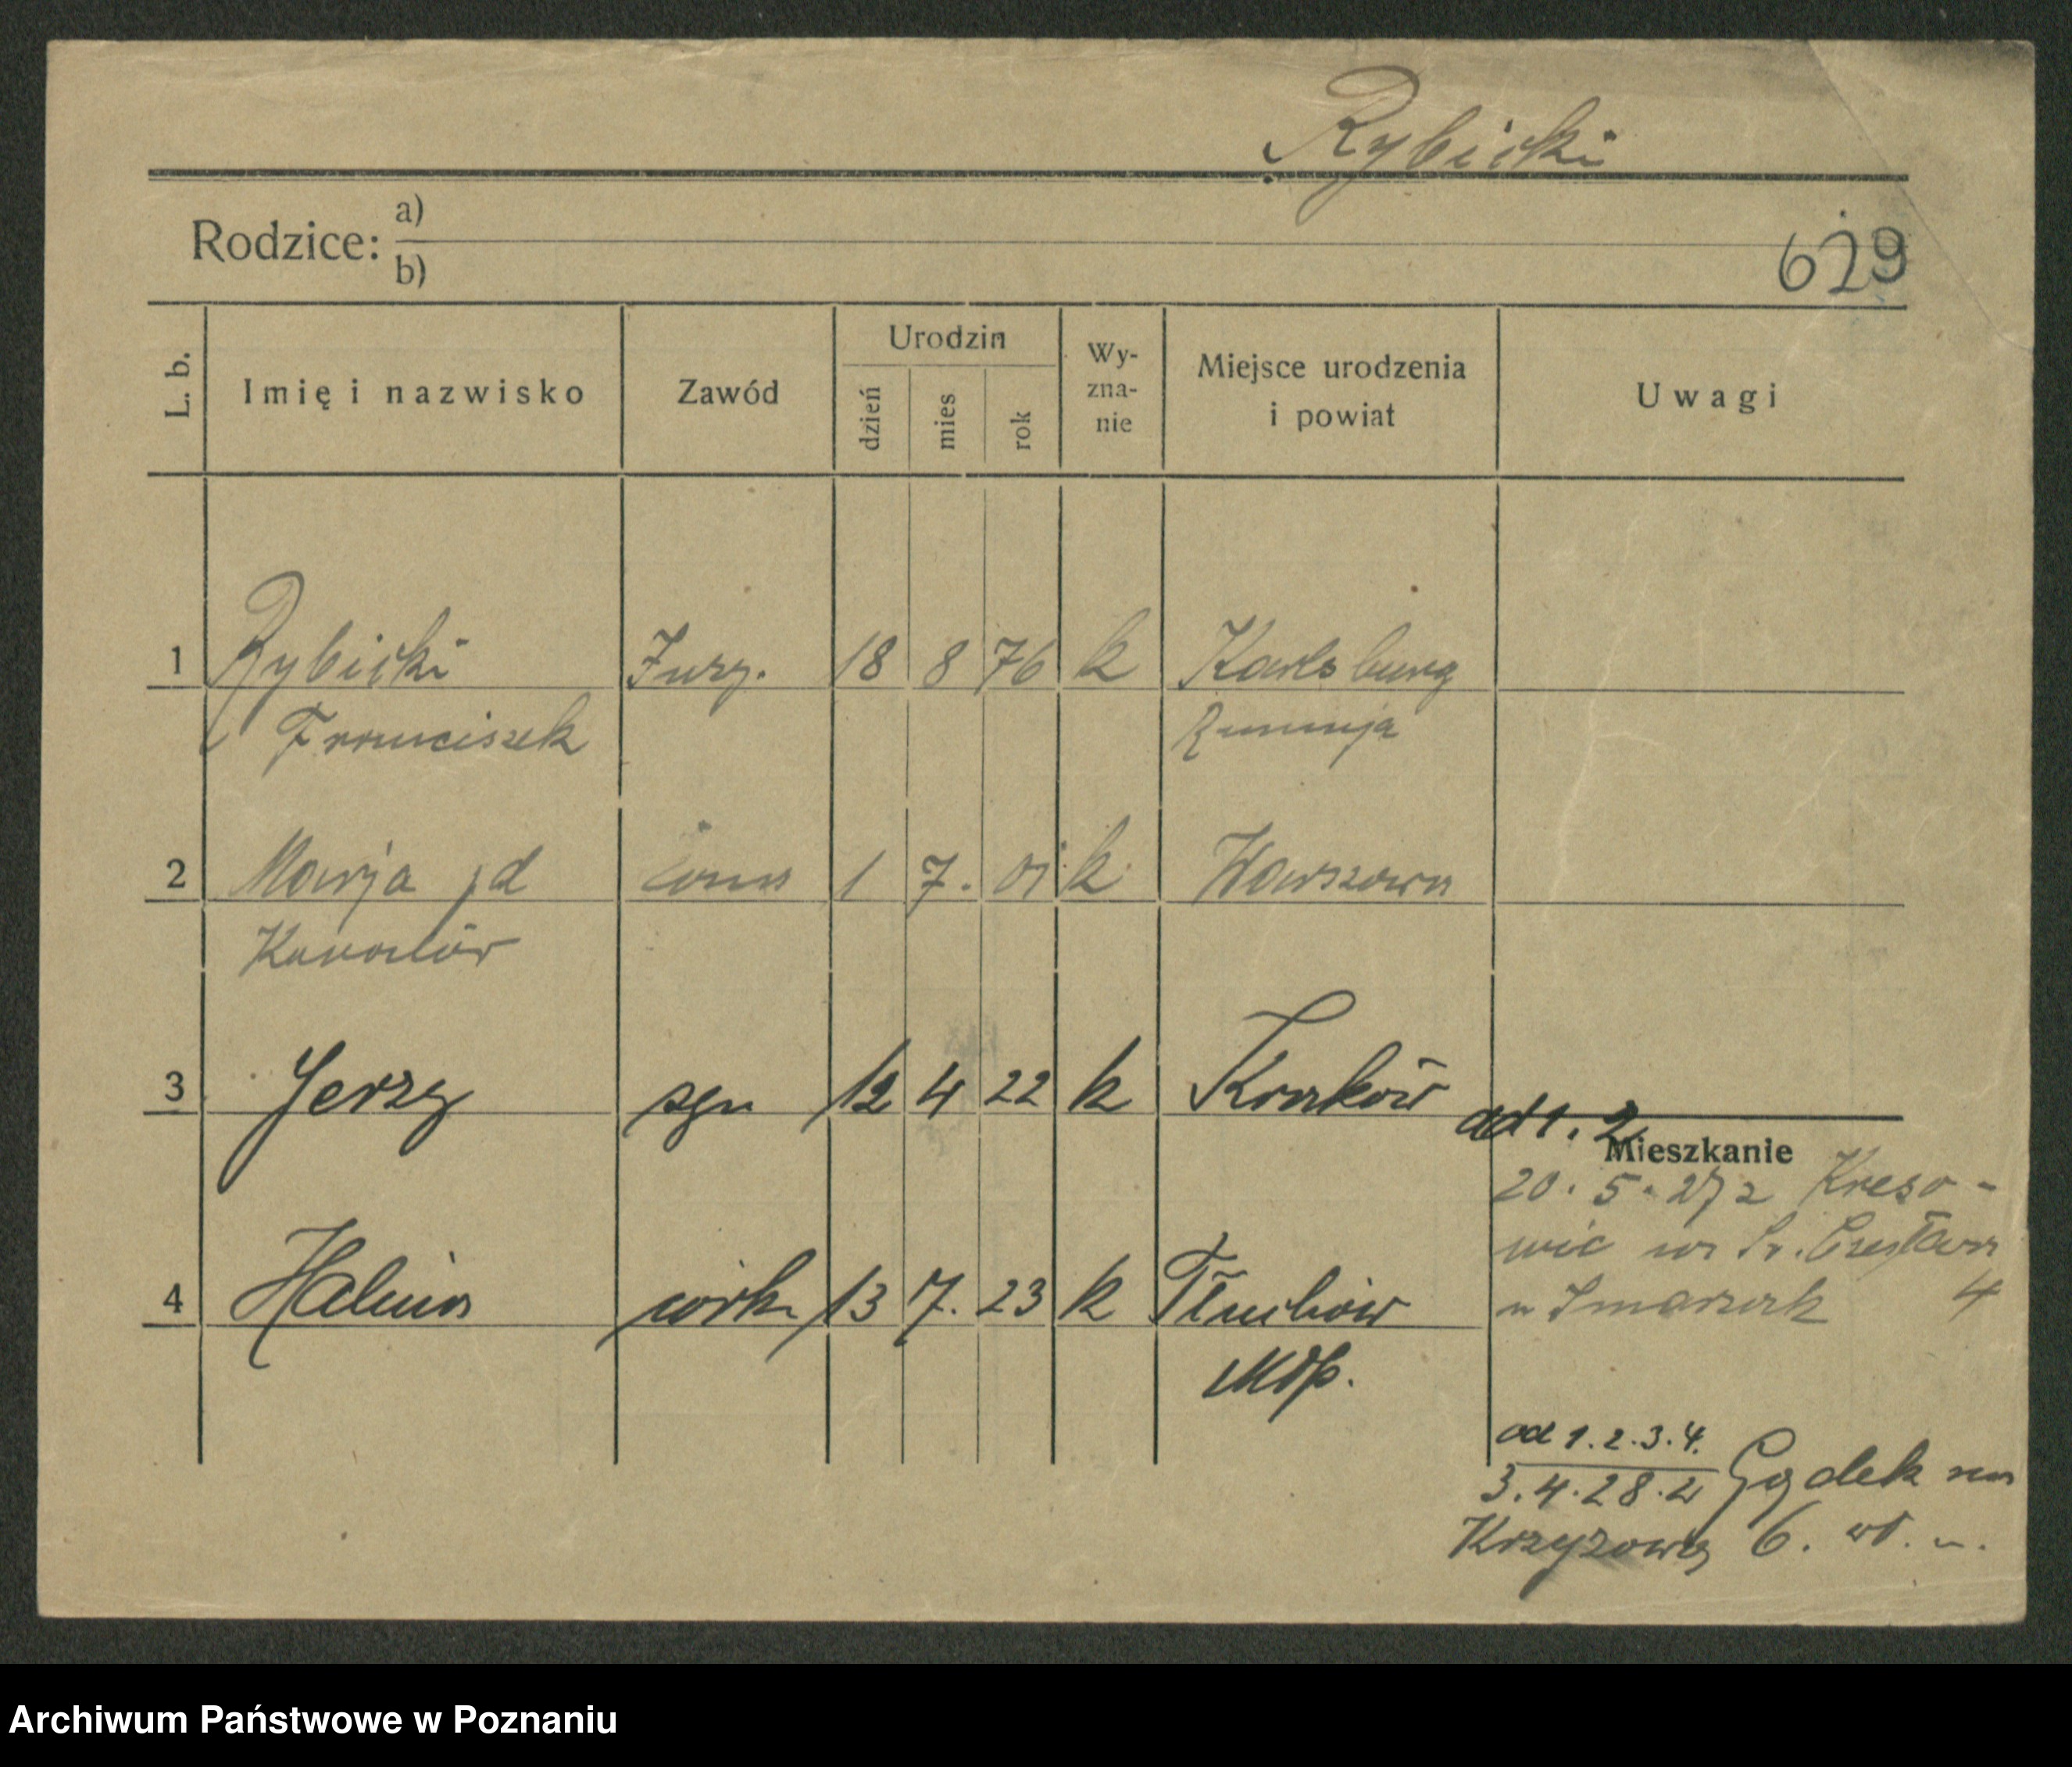 Rybicki
Rodzice: a)
b)
629
L. b. Imię i nazwisko Zawód Urodzin dzień mies rok Wy-zna-nie Miejsce urodzenia i powiat Uwagi
1 Rybicki 18 8 76 k Karlsburg
Franciszek Rumunja
2 Marja żona 1 7. 01 k Warszawa
3 Jerzy syn 12 4 22 k Kraków
ad 1. 2
Mieszkanie
20. 5. 27 z Kreso-
wic św. Czesława
4
4 Halina córk. 13 7. 23 k
Młp.
ad 1. 2. 3. 4.
3. 4. 28. z na
Krzyzową 6.
Archiwum Państwowe w Poznaniu